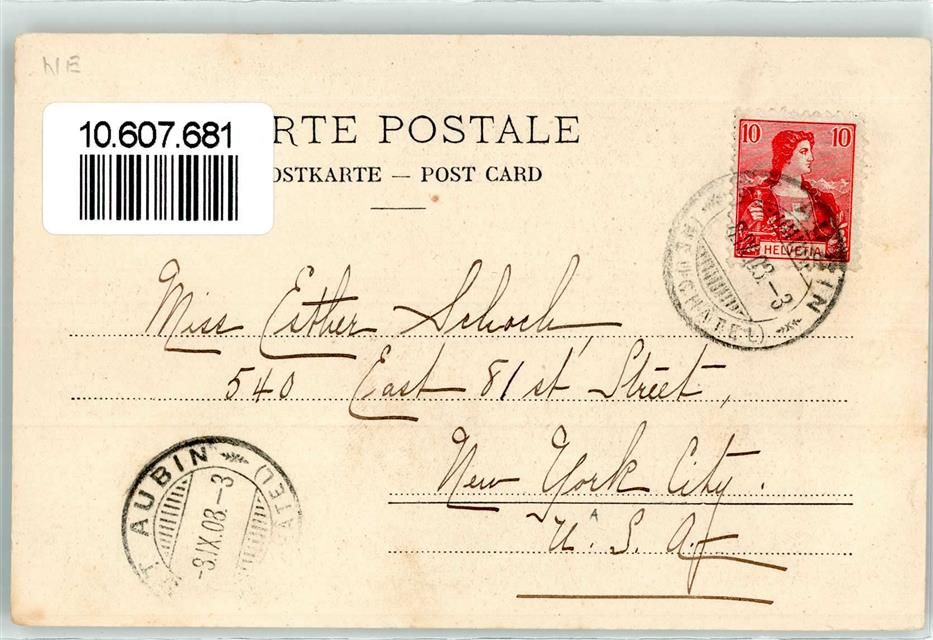 NE
10.607.681
RTE POSTALE
OSTKARTE — POST CARD
10 10
HELVETIA
(NEUCHATEL)
Miss Esther Schoch
540 East 81st Street,
New York City.
U.S.A.
T. AUBIN
-8.IX.08.-3
ATEL)